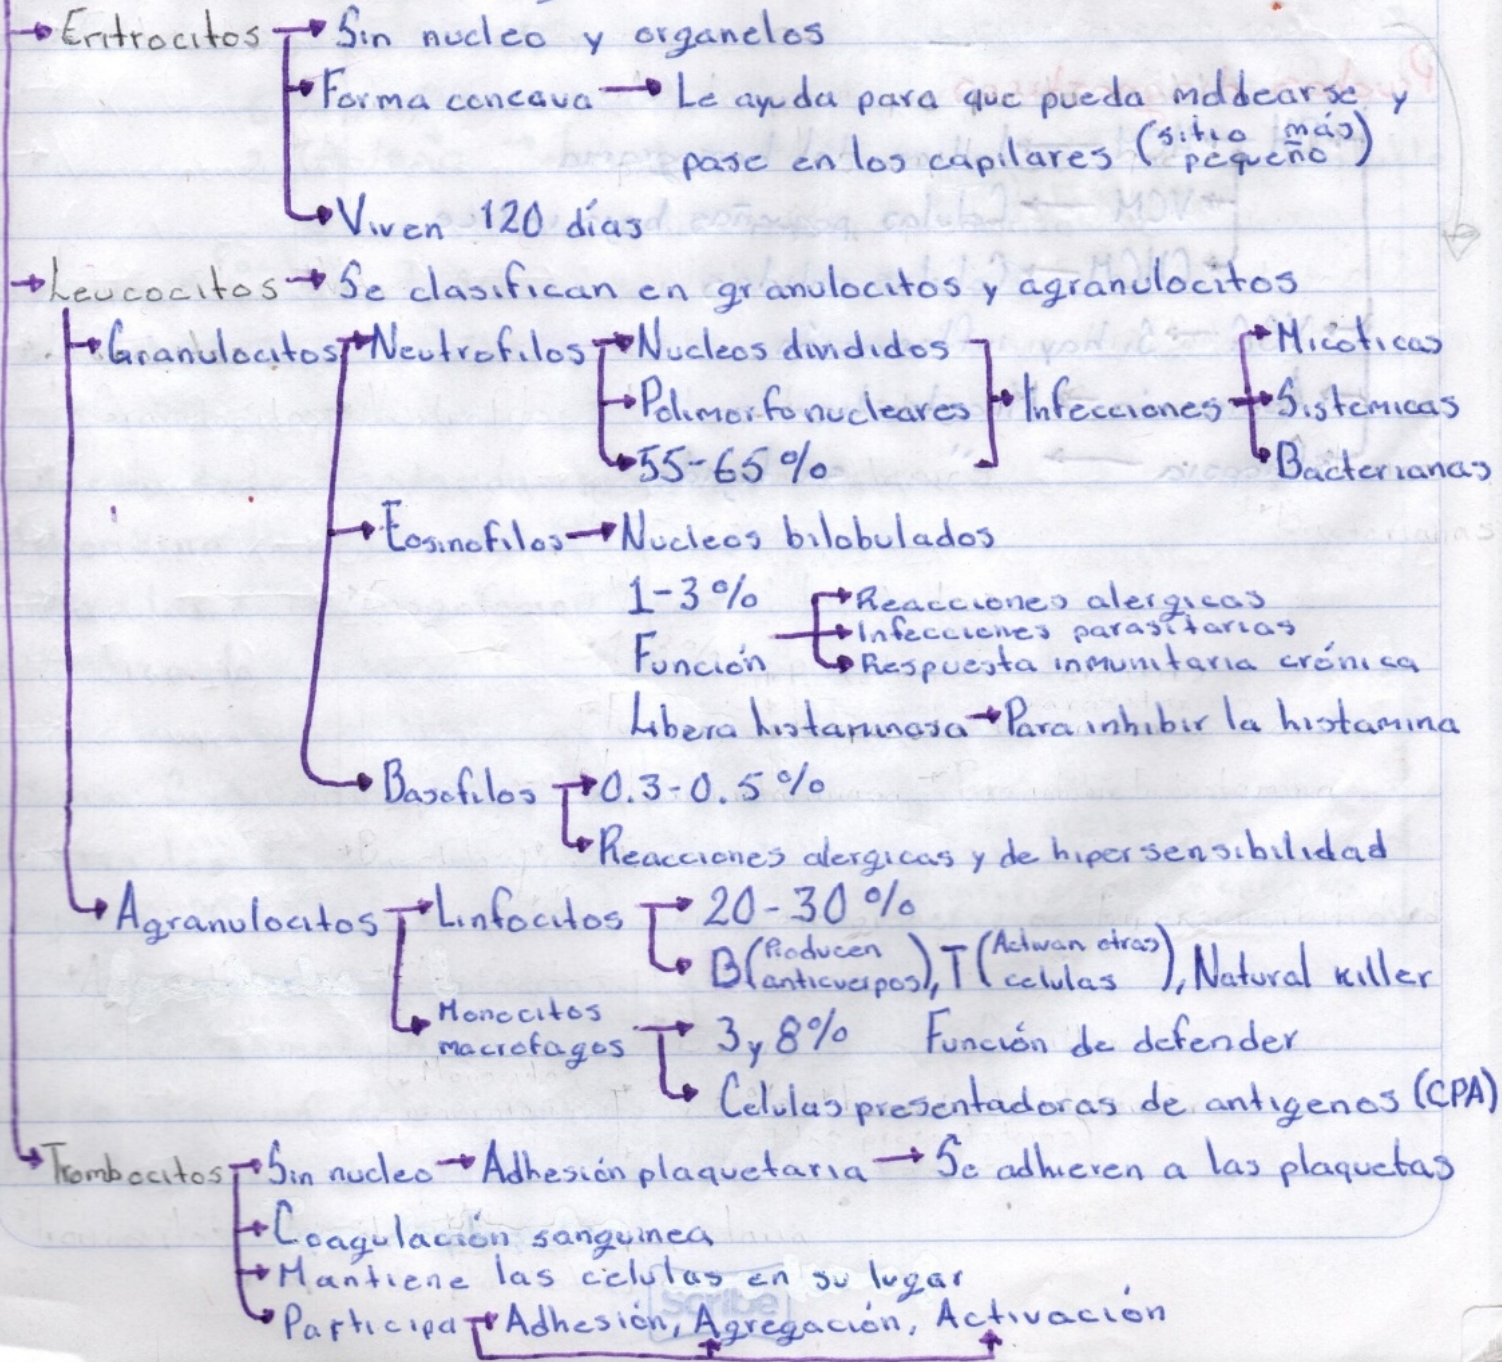 Eritrocitos → Sin nucleo y organelos
Forma concava → Le ayuda para que pueda moldearse y
pase en los capilares (sitio más pequeño)
Viven 120 días
Leucocitos → Se clasifican en granulocitos y agranulocitos
Granulocitos Neutrofilos → Nucleos divididos Micoticas
Polimorfonucleares Infecciones Sistemicas
55-65% Bacterianas
Eosinofilos → Nucleos bilobulados
1-3% Reacciones alergicas
Infecciones parasitarias
Función Respuesta inmunitaria crónica
Libera histaminasa → Para inhibir la histamina
Basofilos → 0.3-0.5%
Reacciones alergicas y de hipersensibilidad
Agranulocitos → Linfocitos → 20-30%
B (Producen anticuerpos), T (Activan otras celulas), Natural killer
Monocitos
macrofagos → 3 y 8% Función de defender
Celulas presentadoras de antigenos (CPA)
Trombocitos → Sin nucleo → Adhesión plaquetaria → Se adhieren a las plaquetas
Coagulación sanguinea
Mantiene las celulas en su lugar
Scribe
Participa → Adhesión, Agregación, Activación